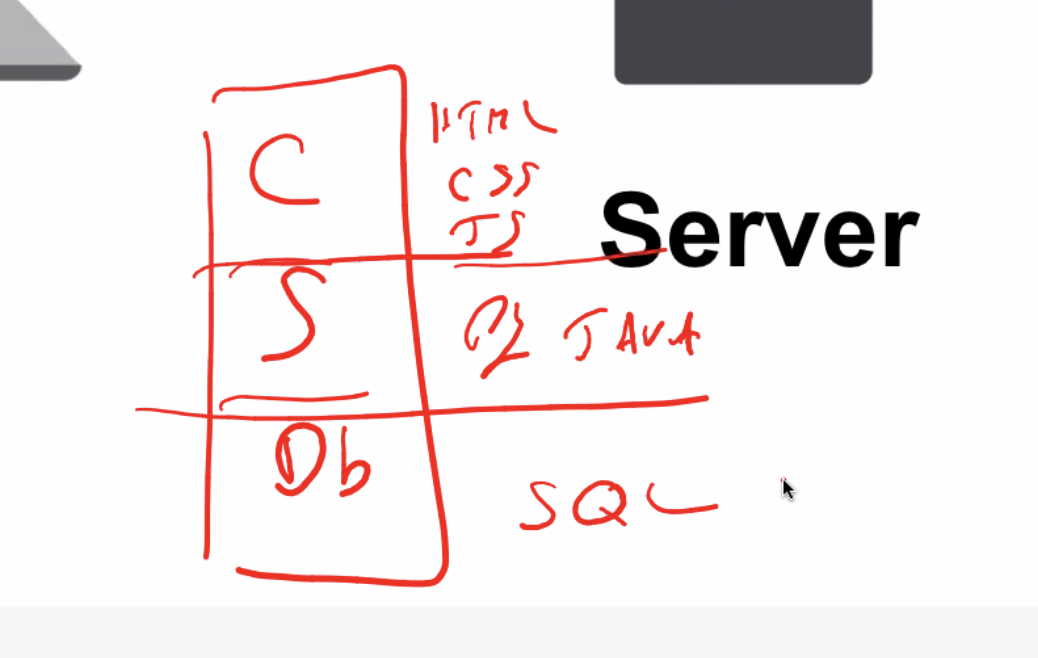 C HTML
CSS
JS
Server
S Py JAVA
Db
SQL